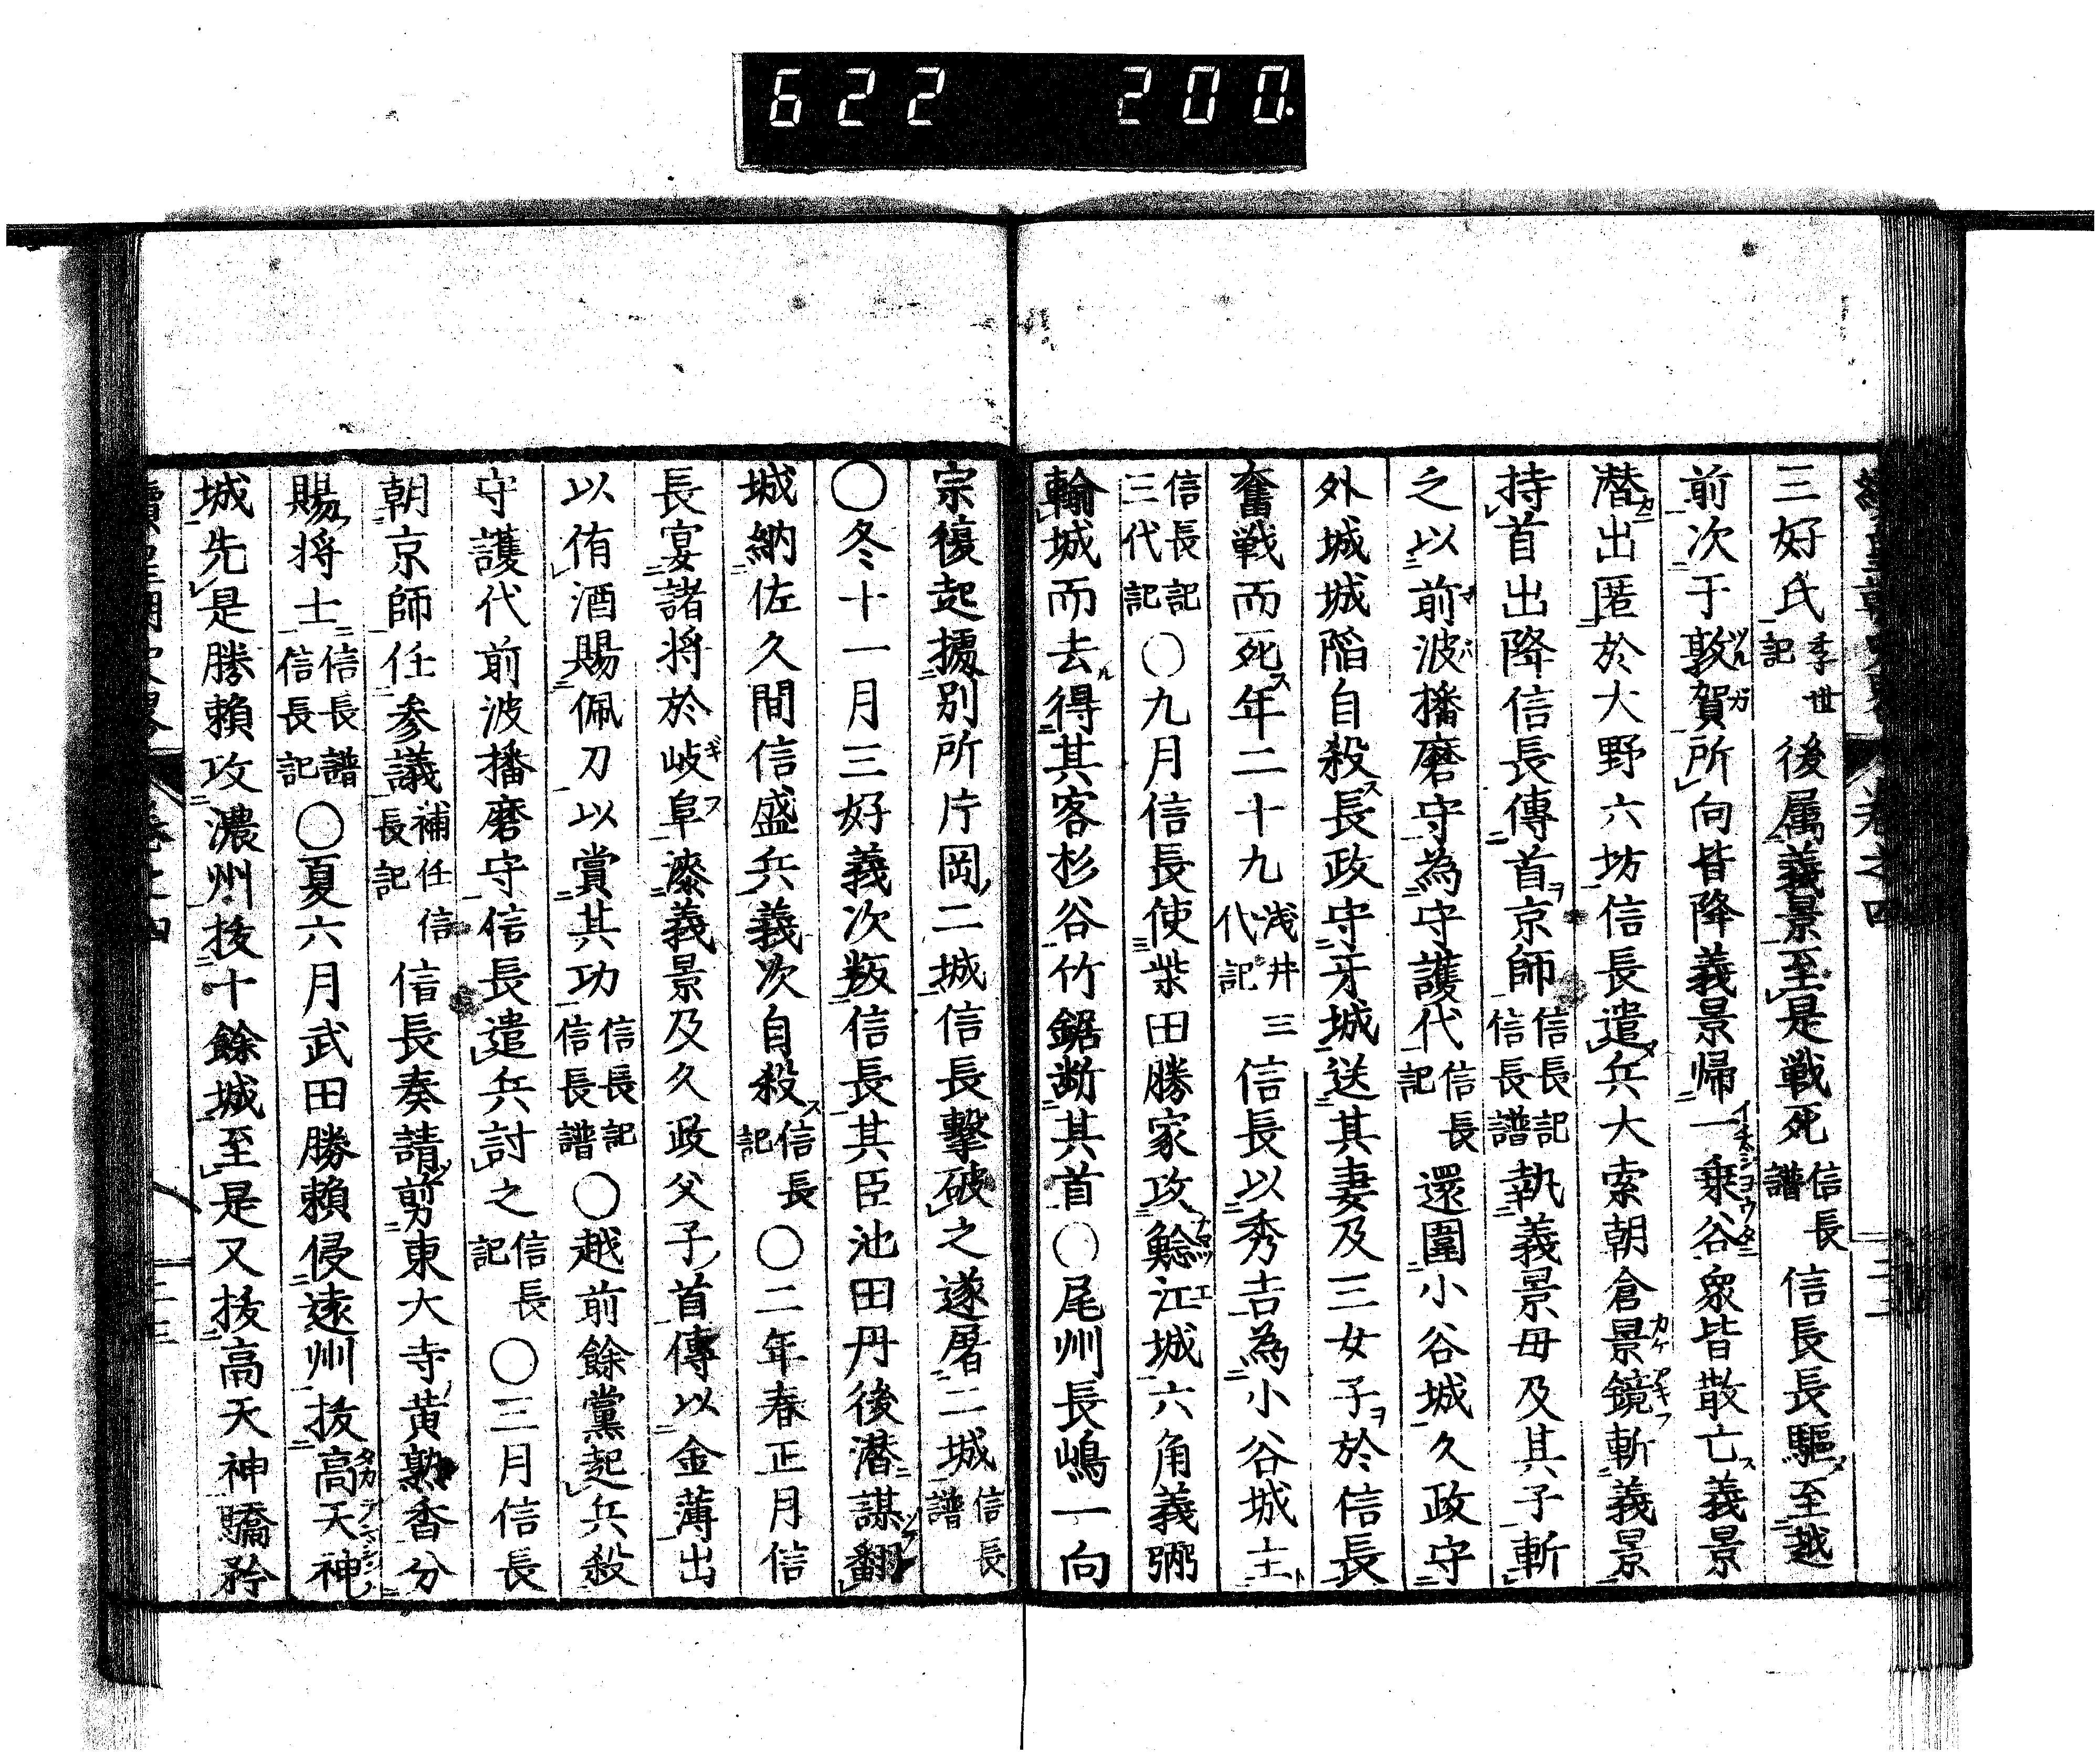 622 200.
三好氏李世記後属義景至是戦死信長譜信長長驅至越
前次于敦賀所向皆降義景帰一乗谷衆皆散亡義景
潜出匿於大野六坊信長遣兵大索朝倉景鏡斬義景
持首出降信長傳首京師信長記信長譜執義景母及其子斬
之以前波播磨守為守護代信長記還圍小谷城久政守
外城城陥自殺長政守牙城送其妻及三女子於信長
奮戦而死年二十九浅井三代記信長以秀吉為小谷城主
信長記三代記〇九月信長使柴田勝家攻鯰江城六角義弼
輸城而去得其客杉谷竹鋸断其首〇尾州長嶋一向
宗復起擾別所片岡二城信長擊破之遂屠二城信長譜
〇冬十一月三好義次叛信長其臣池田丹後潜謀翻
城納佐久間信盛兵義次自殺信長記〇二年春正月信
長宴諸将於岐阜漆義景及久政父子首傳以金薄出
以侑酒賜佩刀以賞其功信長記信長譜〇越前餘黨起兵殺
守護代前波播磨守信長遣兵討之信長記〇三月信長
朝京師任参議補任信長記信長奏請剪東大寺黄熟香分
賜将士信長譜信長記〇夏六月武田勝頼侵遠州抜高天神
城先是勝頼攻濃州抜十餘城至是又抜高天神驕矜